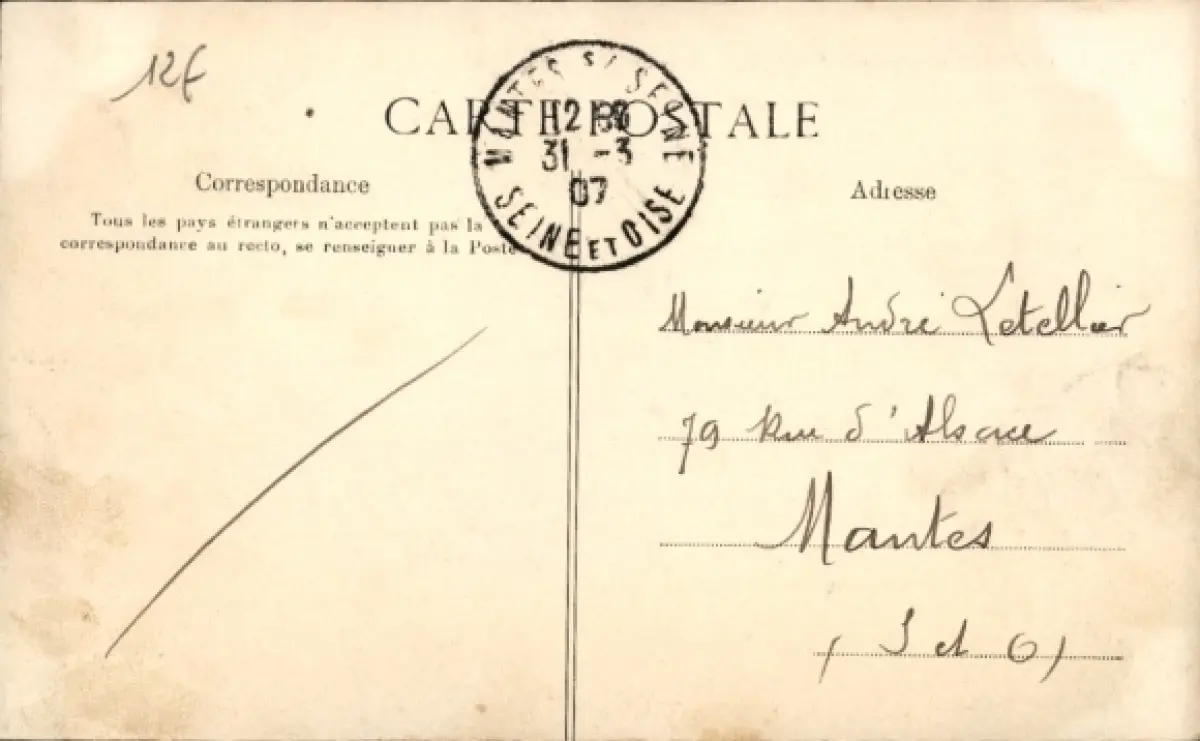 12€
CARTE POSTALE
MANTES S/ SEINE
12
31 -3
07
SEINE ET OISE
Correspondance
Tous les pays étrangers n'acceptent pas la
correspondance au recto, se renseigner à la Poste
Adresse
Monsieur André Letellier
79 Rue d'Alsace
Mantes
(S et O)